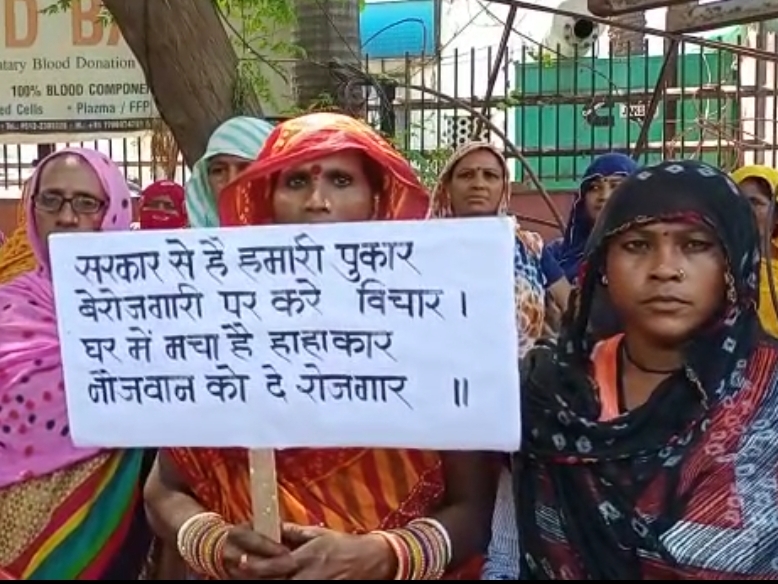 D BA
ntary Blood Donation
100% BLOOD COMPONE
ed Cells • Plazma / FFP
सरकार से है हमारी पुकार
बेरोजगारी पर करे विचार ।
घर में मचा है हाहाकार
नौजवान को दे रोजगार ॥